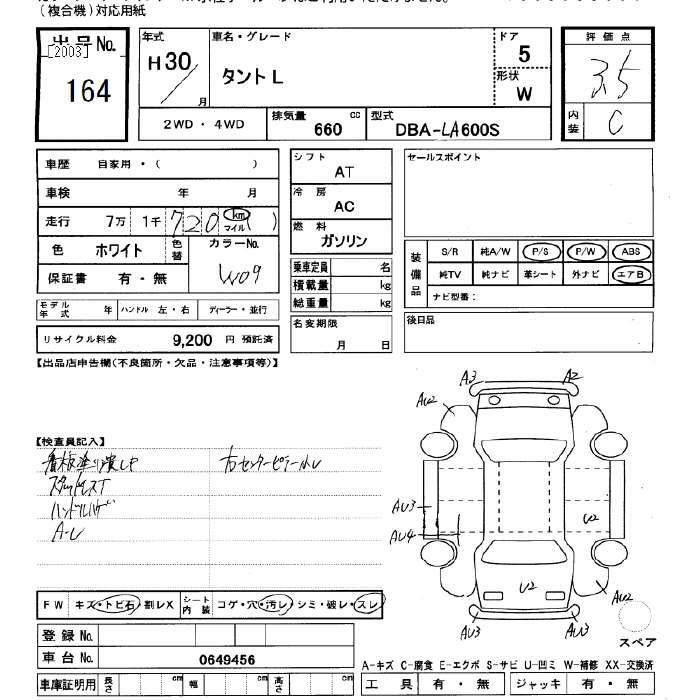 (複合機)対応用紙
出品No.
[2003]
164
年式
H30/月
車名・グレード
タントL
ドア
5
形状
W
評価点
3.5
内装
C
2WD・4WD
排気量 cc
660
型式
DBA-LA600S
車歴 自家用・( )
車検 年 月
走行 7万 1千 720 (km マイル)
色 ホワイト 色替 カラーNo.
W09
保証書 有・無
モデル年式 年 ハンドル 左・右 ディーラー・並行
リサイクル料金 9,200 円 預託済
シフト
AT
冷房
AC
燃料
ガソリン
乗車定員 名
積載量 kg
総重量 kg
名変期限
月 日
セールスポイント
装備品
S/R 純A/W P/S P/W ABS
純TV 純ナビ 革シート 外ナビ エアB
ナビ型番:
後日品
【出品店申告欄(不良箇所・欠品・注意事項等)】
【検査員記入】
看板塗り潰しP 右センターピラー小U
スタッドレスT
ハンドルハゲ
A-U
A3 A2
AU2
AU3
AU4
U2
U2
AU2
AU3 AU3
スペア
FW キズ・トビ石・割レX シート内装 コゲ・穴・汚レ・シミ・破レ・スレ
登録No.
車台No. 0649456
車庫証明用 長さ cm 幅 cm 高さ cm
A-キズ C-腐食 E-エクボ S-サビ U-凹ミ W-補修 XX-交換済
工具 有・無 ジャッキ 有・無